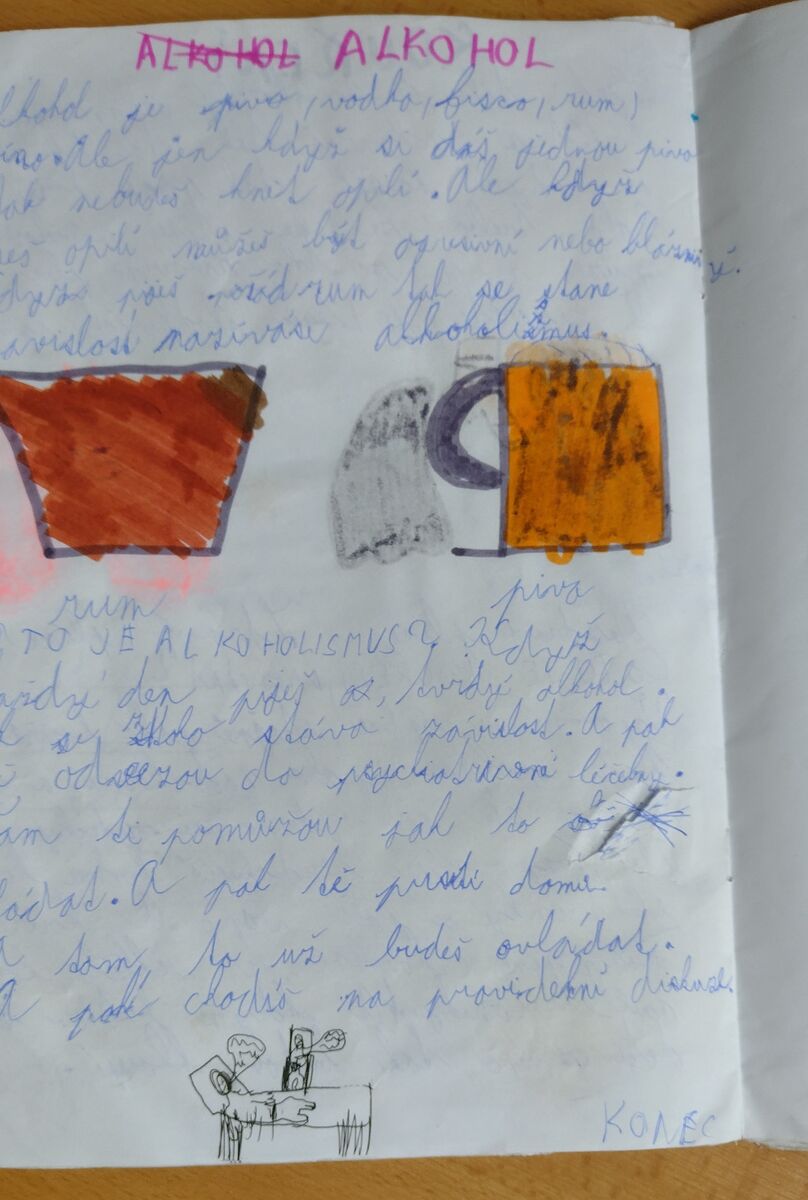 ALKOHOL ALKOHOL
lkohol je pivo, vodka, frisco, rum,
íno. Ale jen když si dáš jednou pivo
tak nebudeš hnet opilí. Ale když
seš opilí můžeš být agresivní nebo bláznivý.
dyž piješ pořád rum tak se stane
ávislost nazíváse alkoholizmus.
rum
pivo
TO JE ALKOHOLISMUS? Když
aždý den piješ tvrdý alkohol.
k se z toho stává závislost. A pak
tě odvezou do psychiatrické léčebny.
am ti pomůžou jak to
ládat. A pak tě pustí domu.
A tam to už budeš ovládat.
A pak chodíš na pravidelní diskuze.
KONEC